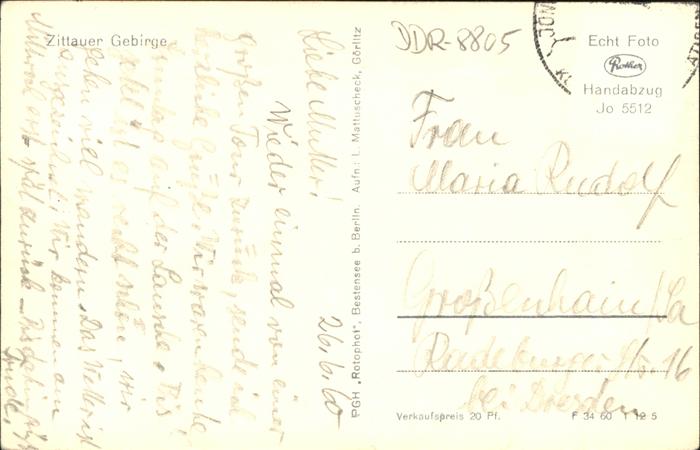 Zittauer Gebirge
26.6.60
Liebe Mutter!
Wieder einmal von einer
großen Tour zurück, sende ich
herzliche Grüße. Wir waren heute
auf der Lausche. Bis
jetzt ist es recht schön, wir
schon viel wandern. Das Wetter ist
Wir kommen am
Mittwoch erst spät zurück. Bis dahin
PGH „Rotophot", Bestensee b. Berlin. Aufn.: L. Mattuscheck, Görlitz
DDR-8805
Echt Foto
Rotho
Handabzug
Jo 5512
Frau
Maria Rudolf
Großenhain/Sa
Radeburger Str. 16
bei Dresden
Verkaufspreis 20 Pf. F 34 60 T 12 5